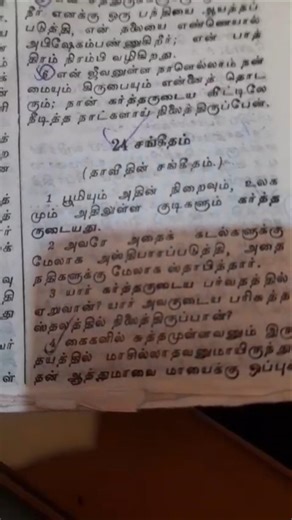 நீர் எனக்கு ஒரு பந்தியை ஆயத்தப்
படுத்தி, என் தலையை எண்ணெயால்
அபிஷேகம்பண்ணுகிறீர்; என் பாத்
திரம் நிரம்பி வழிகிறது.
6 என் ஜீவனுள்ள நாளெல்லாம் நன்
மையும் கிருபையும் என்னைத் தொட
ரும்; நான் கர்த்தருடைய வீட்டிலே
நீடித்த நாட்களாய் நிலைத்திருப்பேன்.
24 சங்கீதம்
(தாவீதின் சங்கீதம்.)
1 பூமியும் அதின் நிறைவும், உலக
மும் அதிலுள்ள குடிகளும் கர்த்த
ருடையது.
2 அவரே அதைக் கடல்களுக்கு
மேலாக அஸ்திபாரப்படுத்தி, அதை
நதிகளுக்கு மேலாக ஸ்தாபித்தார்.
3 யார் கர்த்தருடைய பர்வதத்தில்
ஏறுவான்? யார் அவருடைய பரிசுத்த
ஸ்தலத்தில் நிலைத்திருப்பான்?
4 கைகளில் சுத்தமுள்ளவனும் இரு
தயத்தில் மாசில்லாதவனுமாயிருந்து
தன் ஆத்துமாவை மாயைக்கு ஒப்பு